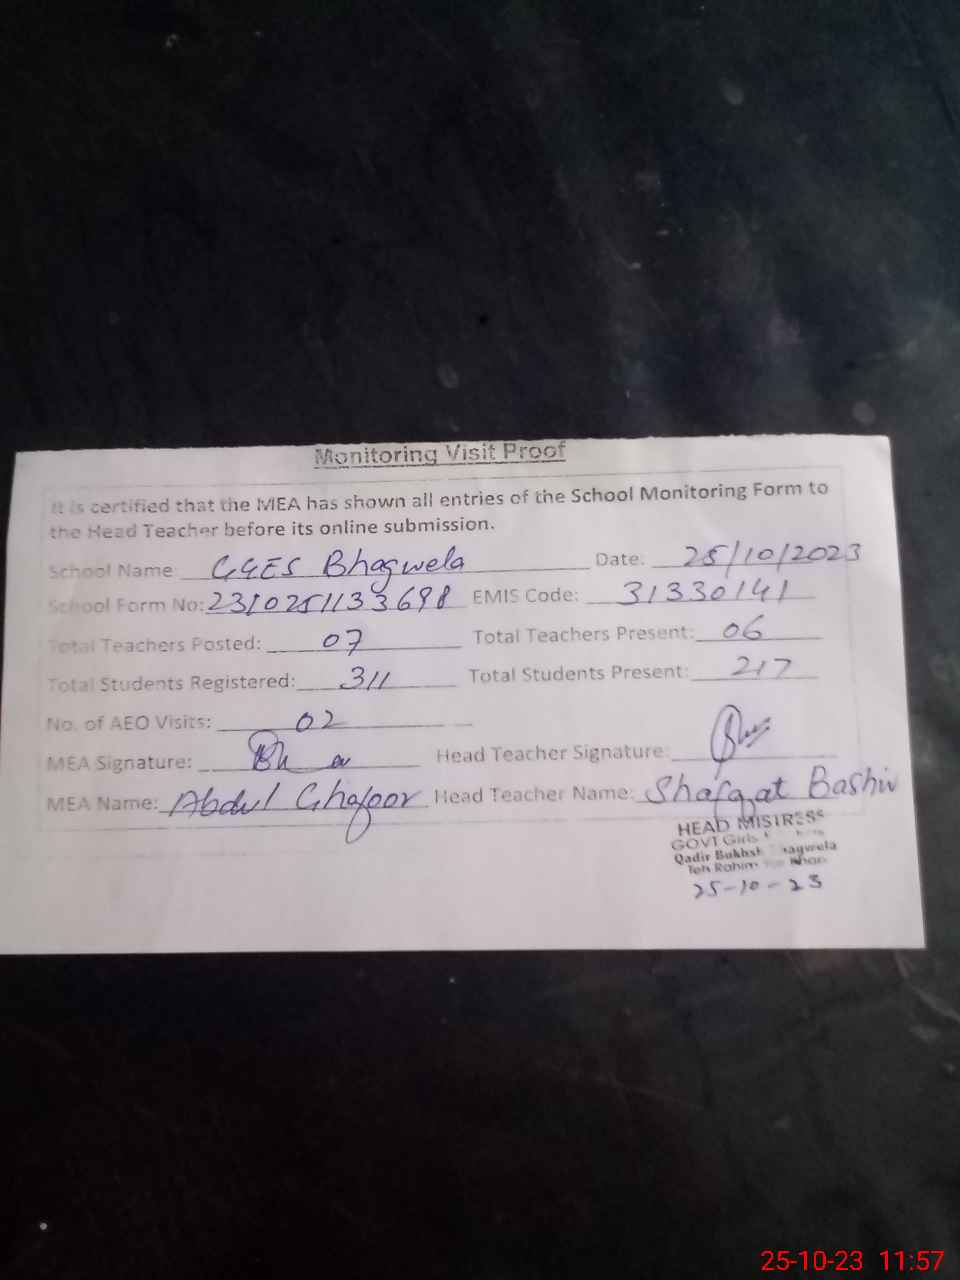 Monitoring Visit Proof
It is certified that the MEA has shown all entries of the School Monitoring Form to
the Head Teacher before its online submission.
School Name GGES Bhagwela Date: 25/10/2023
School Form No: 2310251133698 EMIS Code: 31330141
Total Teachers Posted: 07 Total Teachers Present: 06
Total Students Registered: 311 Total Students Present: 217
No. of AEO Visits: 02
MEA Signature: Head Teacher Signature:
MEA Name: Abdul Ghafoor Head Teacher Name: Shafqat Bashir
HEAD MISTRESS
GOVT Girls
Qadir Bukhsh Bhagwela
Teh Rahim Yar Khan
25-10-23
25-10-23 11:57